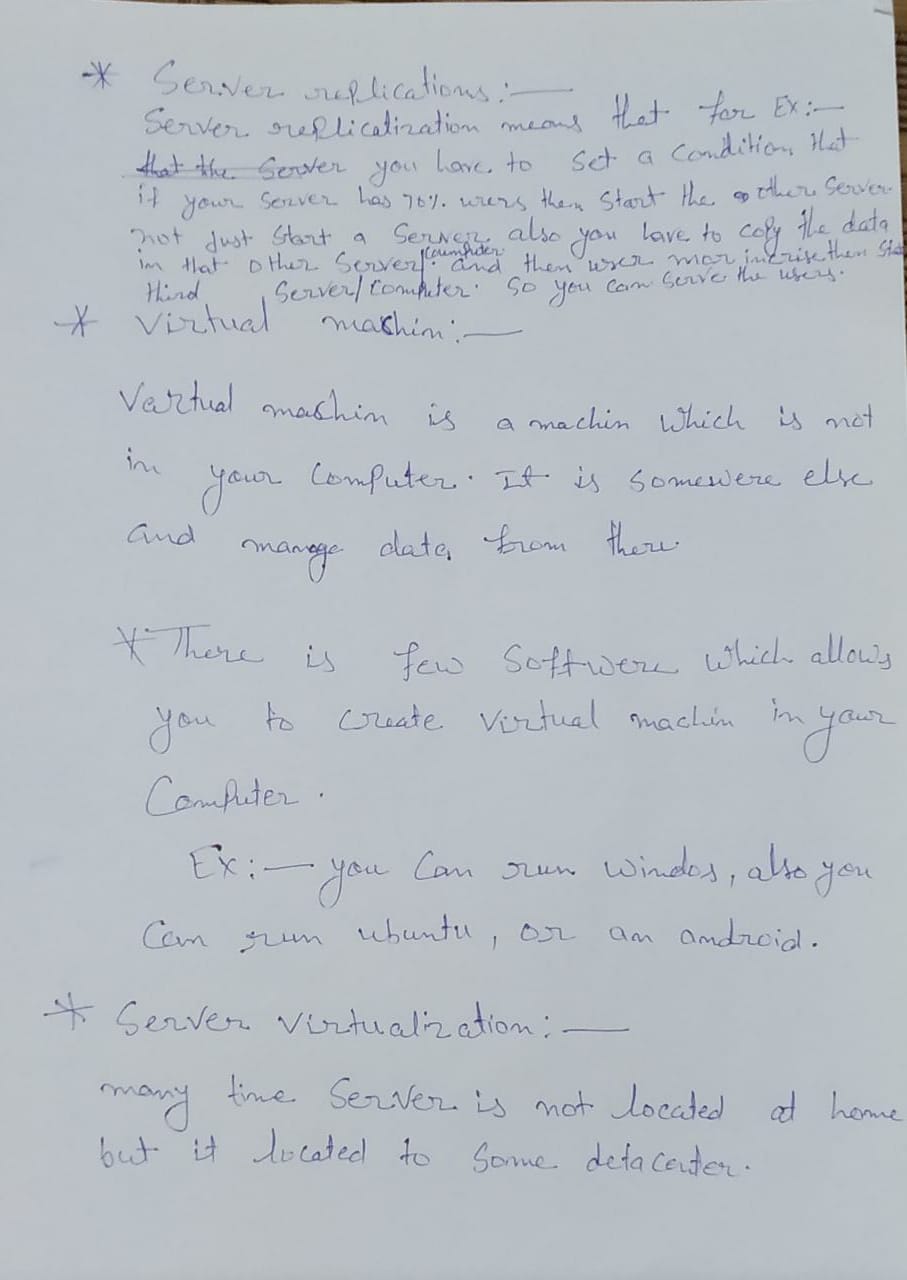 * Server replications:—
Server replicalization means that for Ex:—
that the Server you have to set a condition that
if your server has 70% users then start the other server.
not just start a server, also you have to copy the data
in that other server/computer. and then user mor incrise then sta
third server/computer. So you can serve the users.
* Virtual mashin:—
Vartual mashin is a machin which is not
in your computer. It is somewere else
and manage data from there
* There is few softwere which allows
you to create virtual machin in your
computer.
Ex:— you can run windos, also you
can run ubuntu, or an android.
* Server virtualization:—
many time server is not located at home
but it located to some detacenter.